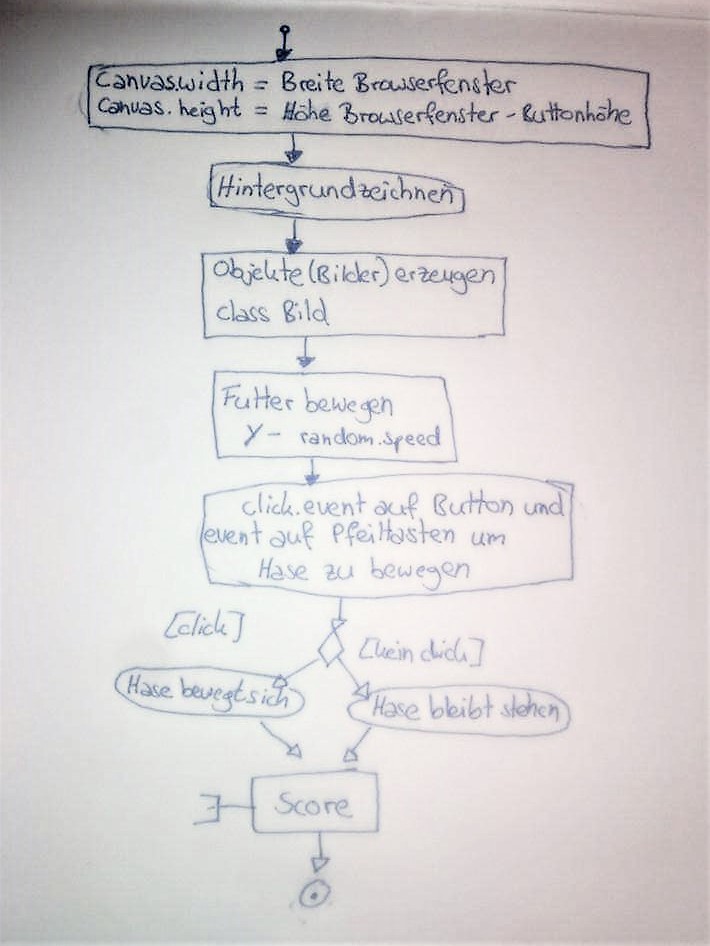 Canvas.width = Breite Browserfenster
Canvas.height = Höhe Browserfenster - Buttonhöhe
Hintergrundzeichnen
Objekte (Bilder) erzeugen
class Bild
Futter bewegen
y - random.speed
click.event auf Button und
event auf Pfeiltasten um
Hase zu bewegen
[click]
[kein click]
Hase bewegt sich
Hase bleibt stehen
Score